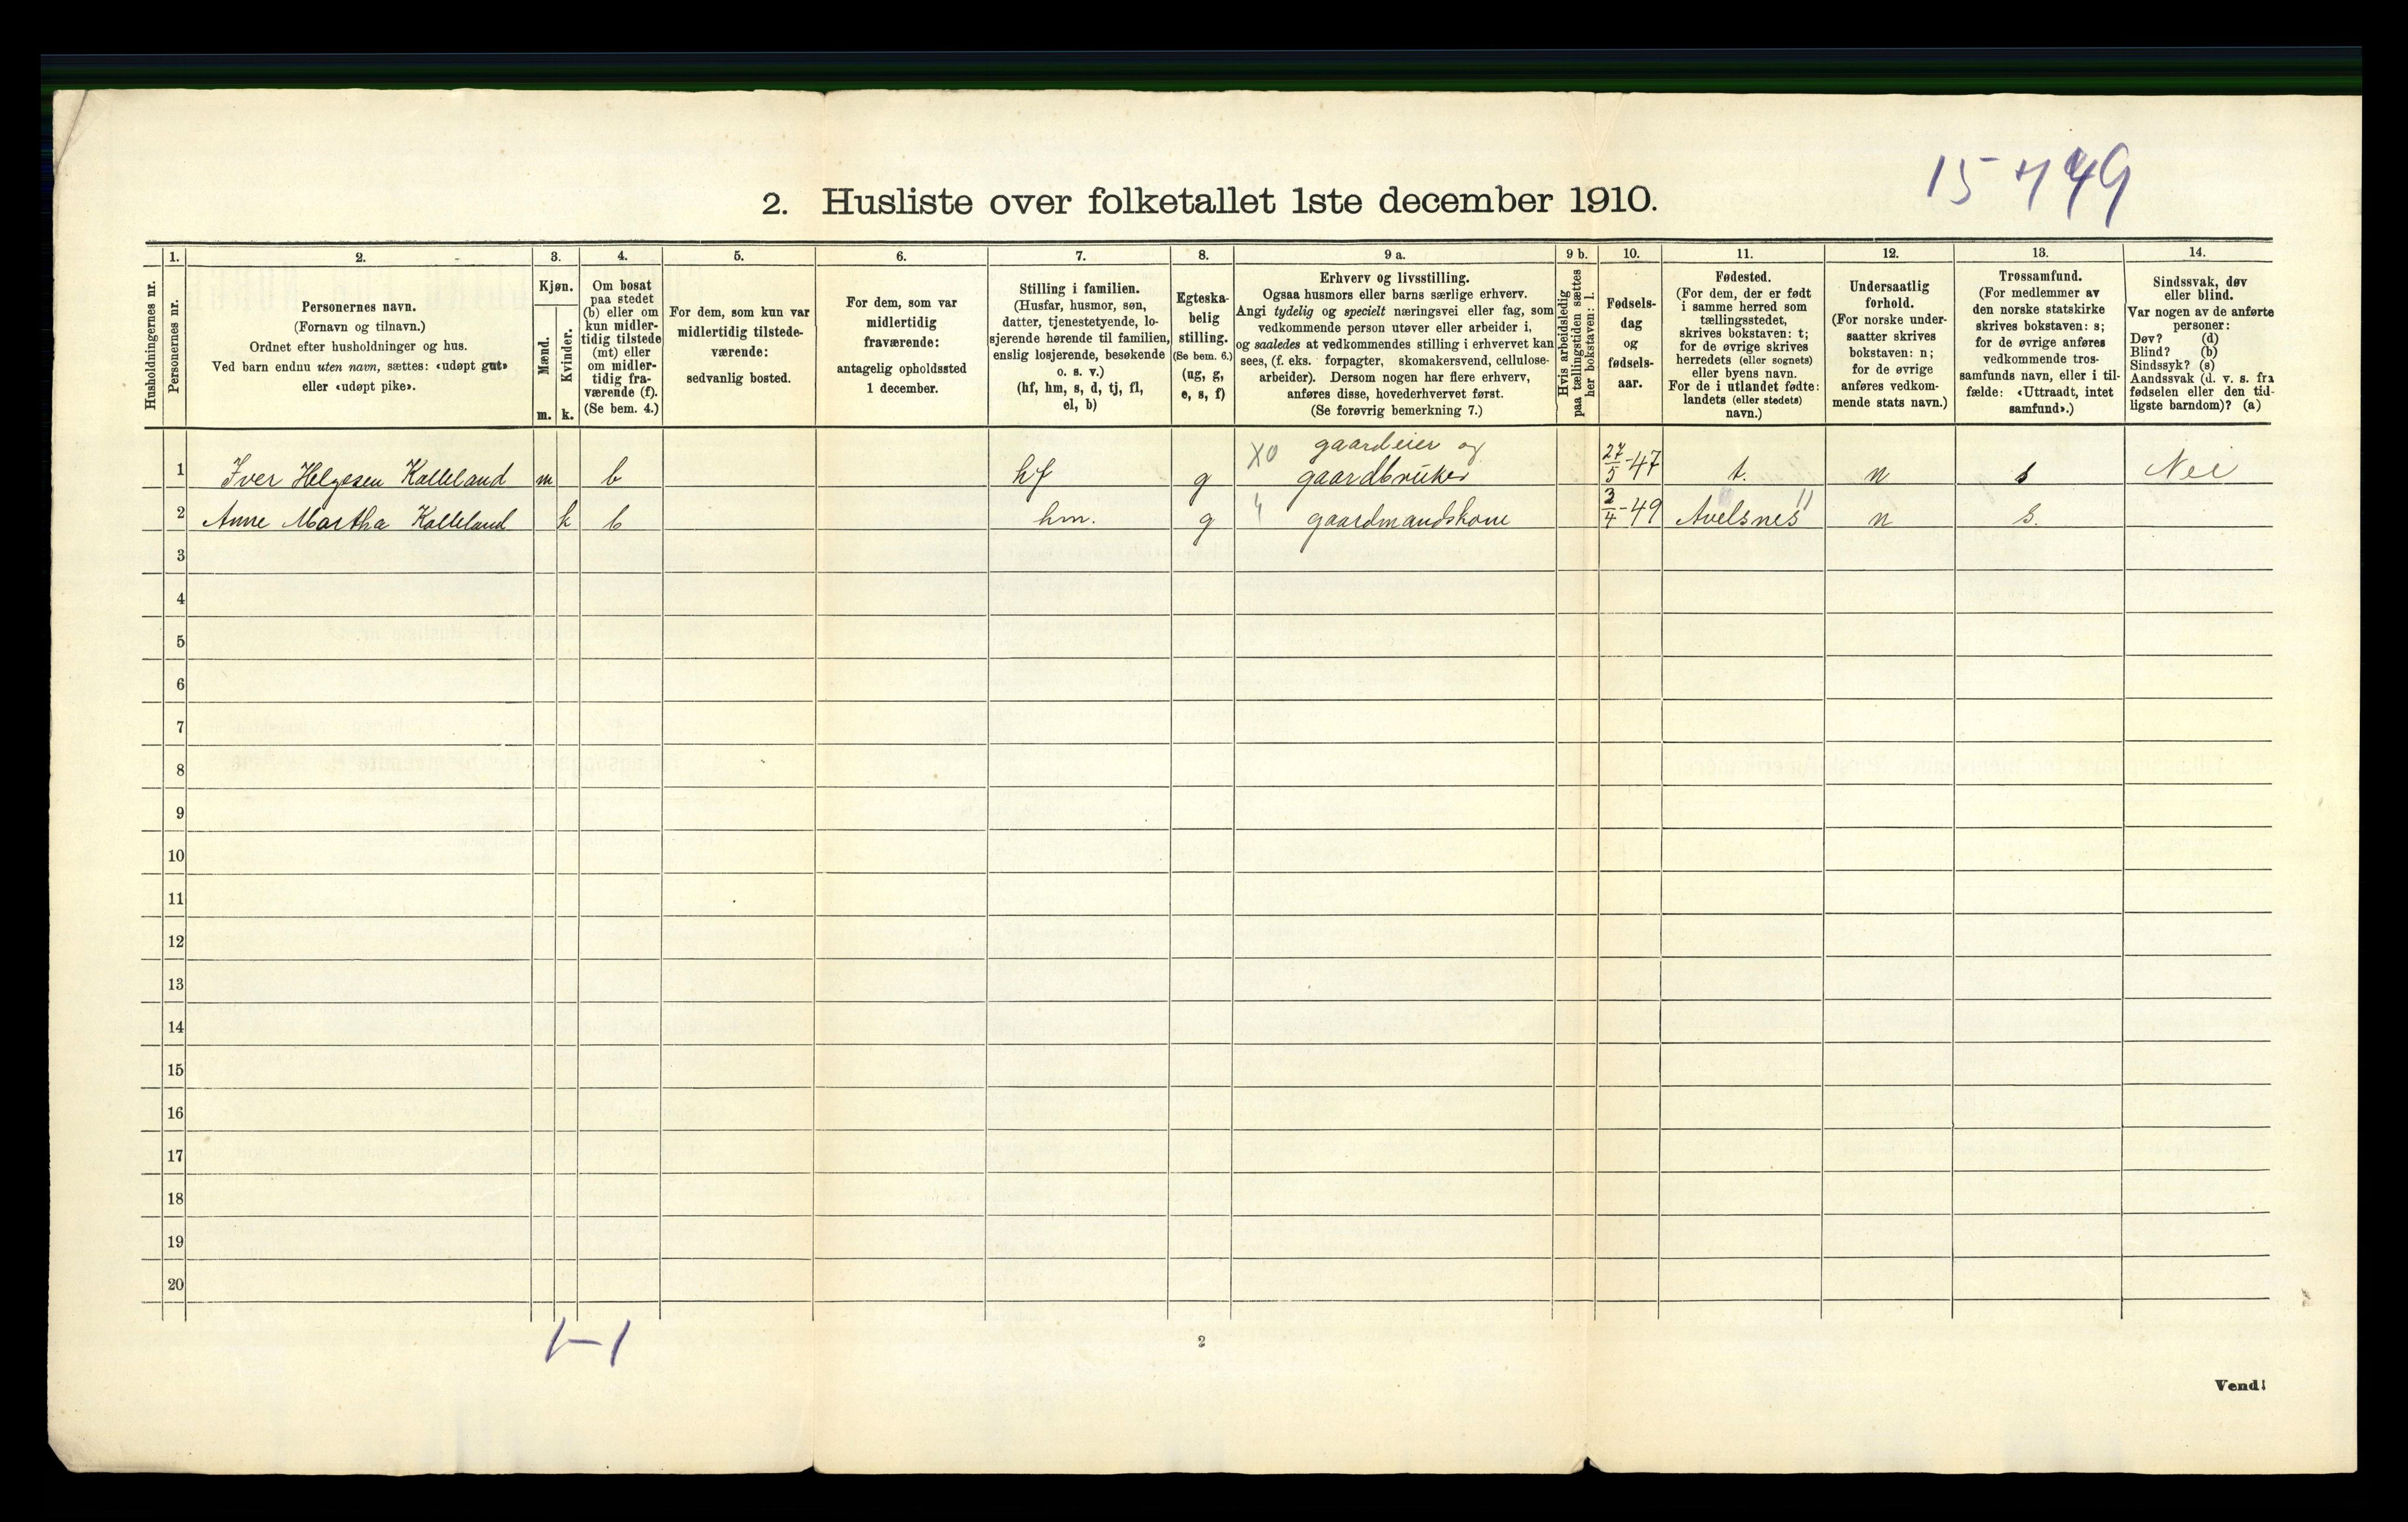 2. Husliste over folketallet 1ste december 1910.
Husholdningernes nr.
1.
Personernes nr.
2.
Personernes navn.
(Fornavn og tilnavn.)
Ordnet efter husholdninger og hus.
Ved barn endnu uten navn, sættes: «udøpt gut»
eller «udøpt pike».
3.
Kjøn.
Mænd.
Kvinder.
m.
k.
4.
Om bosat
paa stedet
(b) eller om
kun midler-
tidig tilstede
(mt) eller
om midler-
tidig fra-
værende (f).
(Se bem. 4.)
5.
For dem, som kun var
midlertidig tilstede-
værende:
sedvanlig bosted.
6.
For dem, som var
midlertidig
fraværende:
antagelig opholdssted
1 december.
7.
Stilling i familien.
(Husfar, husmor, søn,
datter, tjenestetyende, lo-
sjerende hørende til familien,
enslig losjerende, besøkende
o. s. v.)
(hf, hm, s, d, tj, fl,
el, b)
8.
Egteska-
belig
stilling.
(Se bem. 6.)
(ug, g,
e, s, f)
9 a.
Erhverv og livsstilling.
Ogsaa husmors eller barns særlige erhverv.
Angi tydelig og specielt næringsvei eller fag, som
vedkommende person utøver eller arbeider i,
og saaledes at vedkommendes stilling i erhvervet kan
sees, (f. eks. forpagter, skomakersvend, cellulose-
arbeider). Dersom nogen har flere erhverv,
anføres disse, hovederhvervet først.
(Se forøvrig bemerkning 7.)
9 b.
Hvis arbeidsledig
paa tællingstiden sættes
her bokstaven: l.
10.
Fødsels-
dag
og
fødsels-
aar.
11.
Fødested.
(For dem, der er født
i samme herred som
tællingsstedet,
skrives bokstaven: t;
for de øvrige skrives
herredets (eller sognets)
eller byens navn.
For de i utlandet fødte:
landets (eller stedets)
navn.)
12.
Undersaatlig
forhold.
(For norske under-
saatter skrives
bokstaven: n;
for de øvrige
anføres vedkom-
mende stats navn.)
13.
Trossamfund.
(For medlemmer av
den norske statskirke
skrives bokstaven: s;
for de øvrige anføres
vedkommende tros-
samfunds navn, eller i til-
fælde: «Uttraadt, intet
samfund».)
14.
Sindssvak, døv
eller blind.
Var nogen av de anførte
personer:
Døv? (d)
Blind? (b)
Sindssyk? (s)
Aandssvak (d. v. s. fra
fødselen eller den tid-
ligste barndom)? (a)
gaardeier og
1 Iver Helgesen Kalleland m b hf g X0 gaardbruker 27/5-47 t. n s Nei
2 Anne Martha Kalleland k b hm. g gaardmandskone 3/4-49 Avelsnes 11 n s.
3
4
5
6
7
8
9
10
11
12
13
14
15
16
17
18
19
20
1-1
2
Vend!